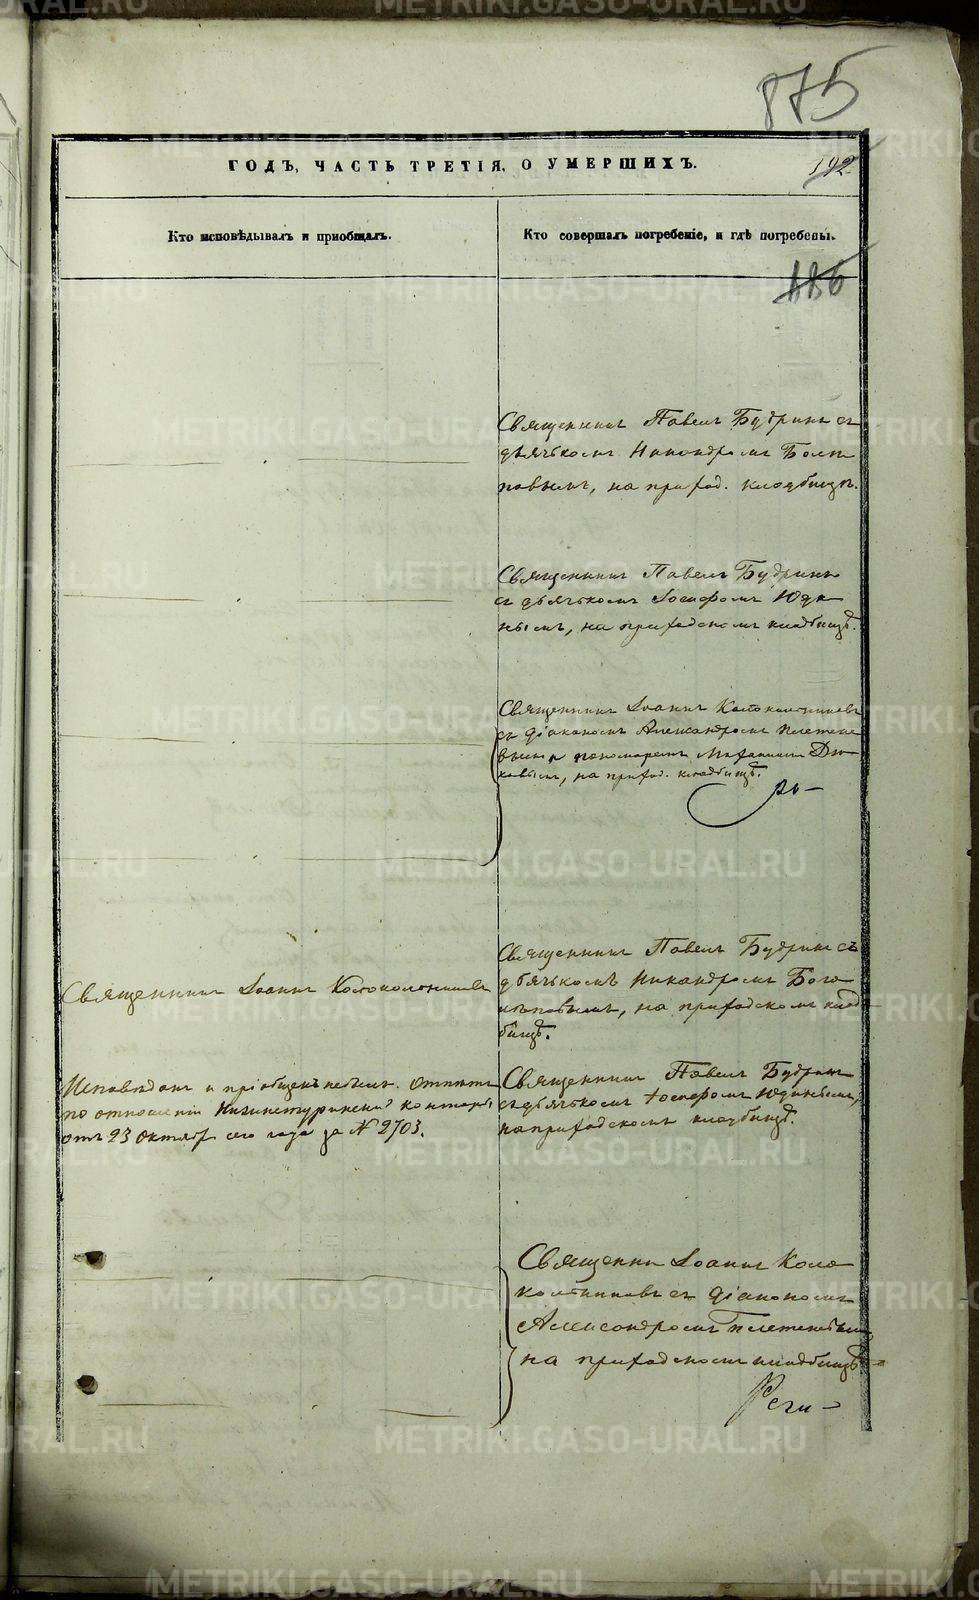 875
ГОДЪ, ЧАСТЬ ТРЕТІЯ, О УМЕРШИХЪ.
192
Кто исповѣдывалъ и пріобщалъ.
Кто совершалъ погребеніе, и гдѣ погребены.
886
Священникъ Павелъ Будринъ съ
дьячькомъ Никандромъ Бого
повымъ, на приход. кладбищѣ.
Священникъ Павелъ Будринъ
съ дьячькомъ Іосифомъ Юди
нымъ, на приходскомъ кладбищѣ.
Священникъ Іоаннъ Колокольниковъ
съ діакономъ Александромъ Плетене
вымъ и пономаремъ
ковымъ, на приход. кладбищѣ.
Священникъ Іоаннъ Колокольниковъ
Священникъ Павелъ Будринъ съ
дьячькомъ Никандромъ Бого
лѣповымъ, на приходскомъ клад
бищѣ.
Исповѣданъ и пріобщенъ небылъ. Отпѣтъ
по отношенію Нижнетуринской конторы
отъ 23 Октябр сего года за № 2703.
Священникъ Павелъ Будринъ
съ дьячькомъ Іосифомъ Юдинымъ,
на приходскомъ кладбищѣ.
Священни Іоаннъ Коло
кольниковъ съ діакономъ
Александромъ Плетеневымъ
на приходскомъ кладбищѣ.
METRIKI.GASO-URAL.RU